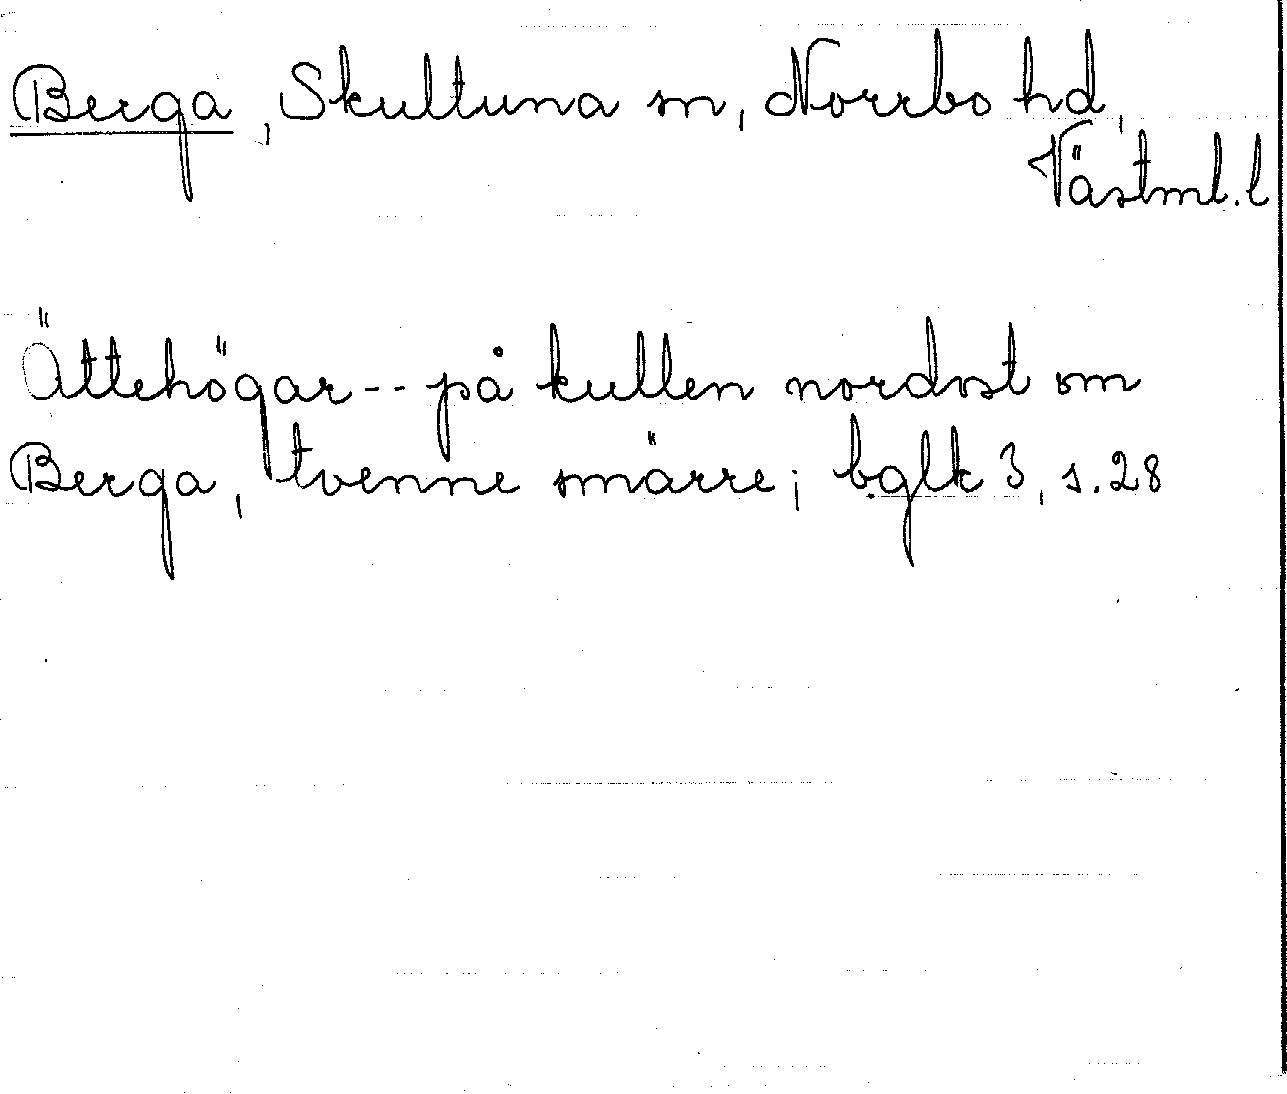 Berga, Skultuna sn, Norrbo hd,
Västml. l
Ättehögar -- på kullen nordost om
Berga, tvenne smärre; bglk 3, s. 28